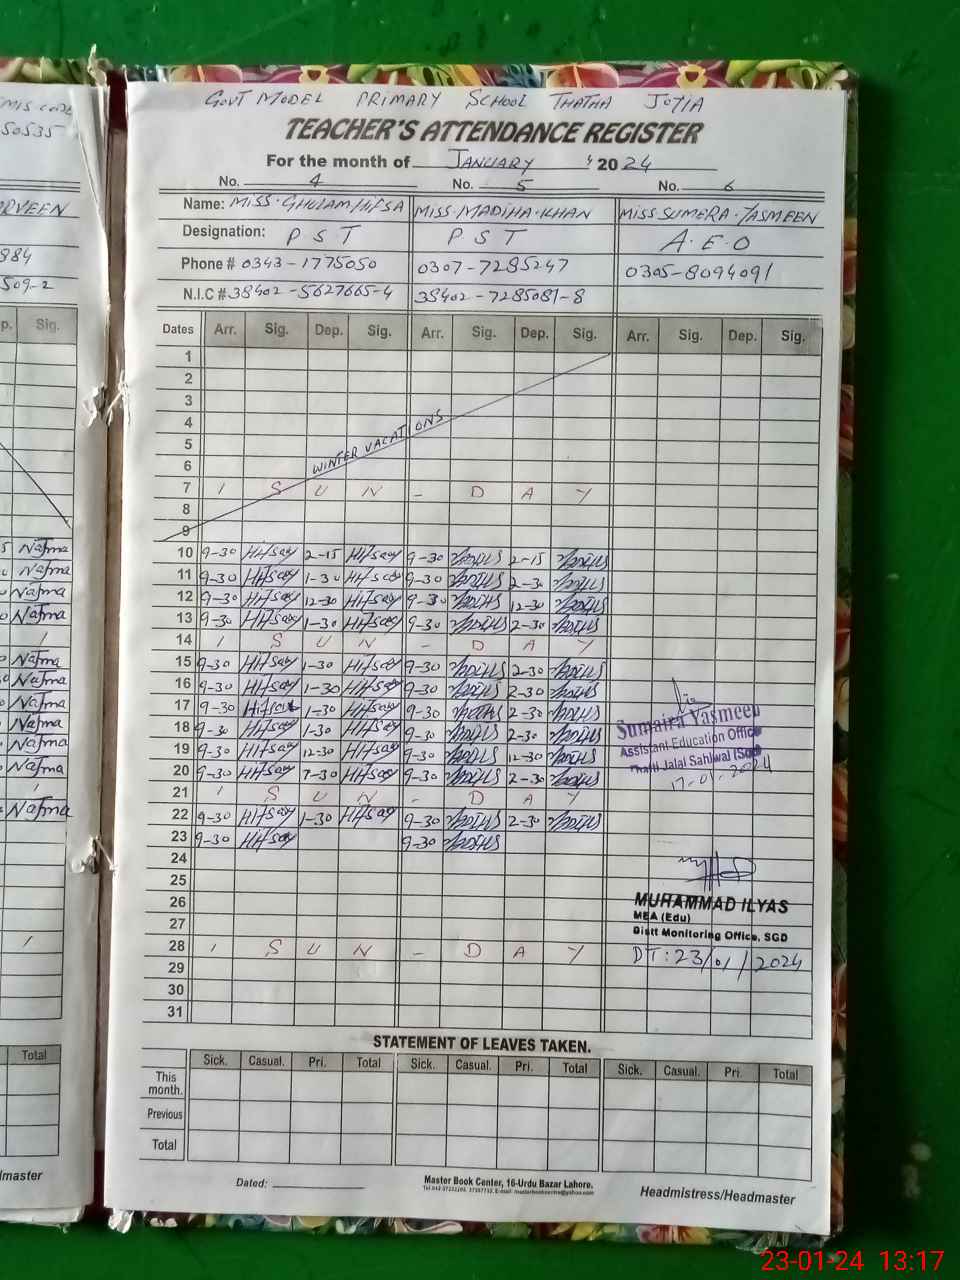 MIS CODE
50535
GOVT MODEL PRIMARY SCHOOL THATHA JOYIA
TEACHER'S ATTENDANCE REGISTER
For the month of JANUARY 2024
No. 4 No. 5 No. 6
RVEEN Name: MISS. GHULAM HIFSA MISS. MADIHA. KHAN MISS SUMERA. YASMEEN
Designation: P S T P S T A. E. O
884 Phone # 0343-1775050 0307-7285247 0305-8094091
509-2 N.I.C # 38402-5627665-4 38402-7285081-8
p. Sig. Dates Arr. Sig. Dep. Sig. Arr. Sig. Dep. Sig. Arr. Sig. Dep. Sig.
1
2
3
4
WINTER VACATIONS
5
6
7 S U N - D A Y
8
9
Najma 10 9-30 Hifsa 2-15 Hifsa 9-30 2-15
Najma 11 9-30 Hifsa 1-30 Hifsa 9-30 2-30
Najma 12 9-30 Hifsa 12-30 Hifsa 9-30 12-30
Najma 13 9-30 Hifsa 1-30 Hifsa 9-30 2-30
14 S U N - D A Y
Najma 15 9-30 Hifsa 1-30 Hifsa 9-30 2-30
Najma 16 9-30 Hifsa 1-30 Hifsa 9-30 2-30
Najma 17 9-30 Hifsa 1-30 Hifsa 9-30 2-30
Najma 18 9-30 Hifsa 1-30 Hifsa 9-30 2-30
Najma 19 9-30 Hifsa 12-30 Hifsa 9-30 12-30
Najma 20 9-30 Hifsa Hifsa 9-30 2-30
Sumaira Yasmeen
Assistant Education Office
Jalal Sahiwal (Sgd)
17-01-2024
21 S U N - D A Y
Najma 22 9-30 Hifsa 1-30 Hifsa 9-30 2-30
23 9-30 Hifsa 9-30
24
25
26
27
MUHAMMAD ILYAS
MEA (Edu)
Distt Monitoring Office, SGD
DT: 23/01/2024
28 S U N - D A Y
29
30
31
STATEMENT OF LEAVES TAKEN.
Total Sick. Casual. Pri. Total Sick. Casual. Pri. Total Sick. Casual. Pri. Total
This month.
Previous
Total
Dated:
Master Book Center, 16-Urdu Bazar Lahore.
lmaster Headmistress/Headmaster
23-01-24 13:17